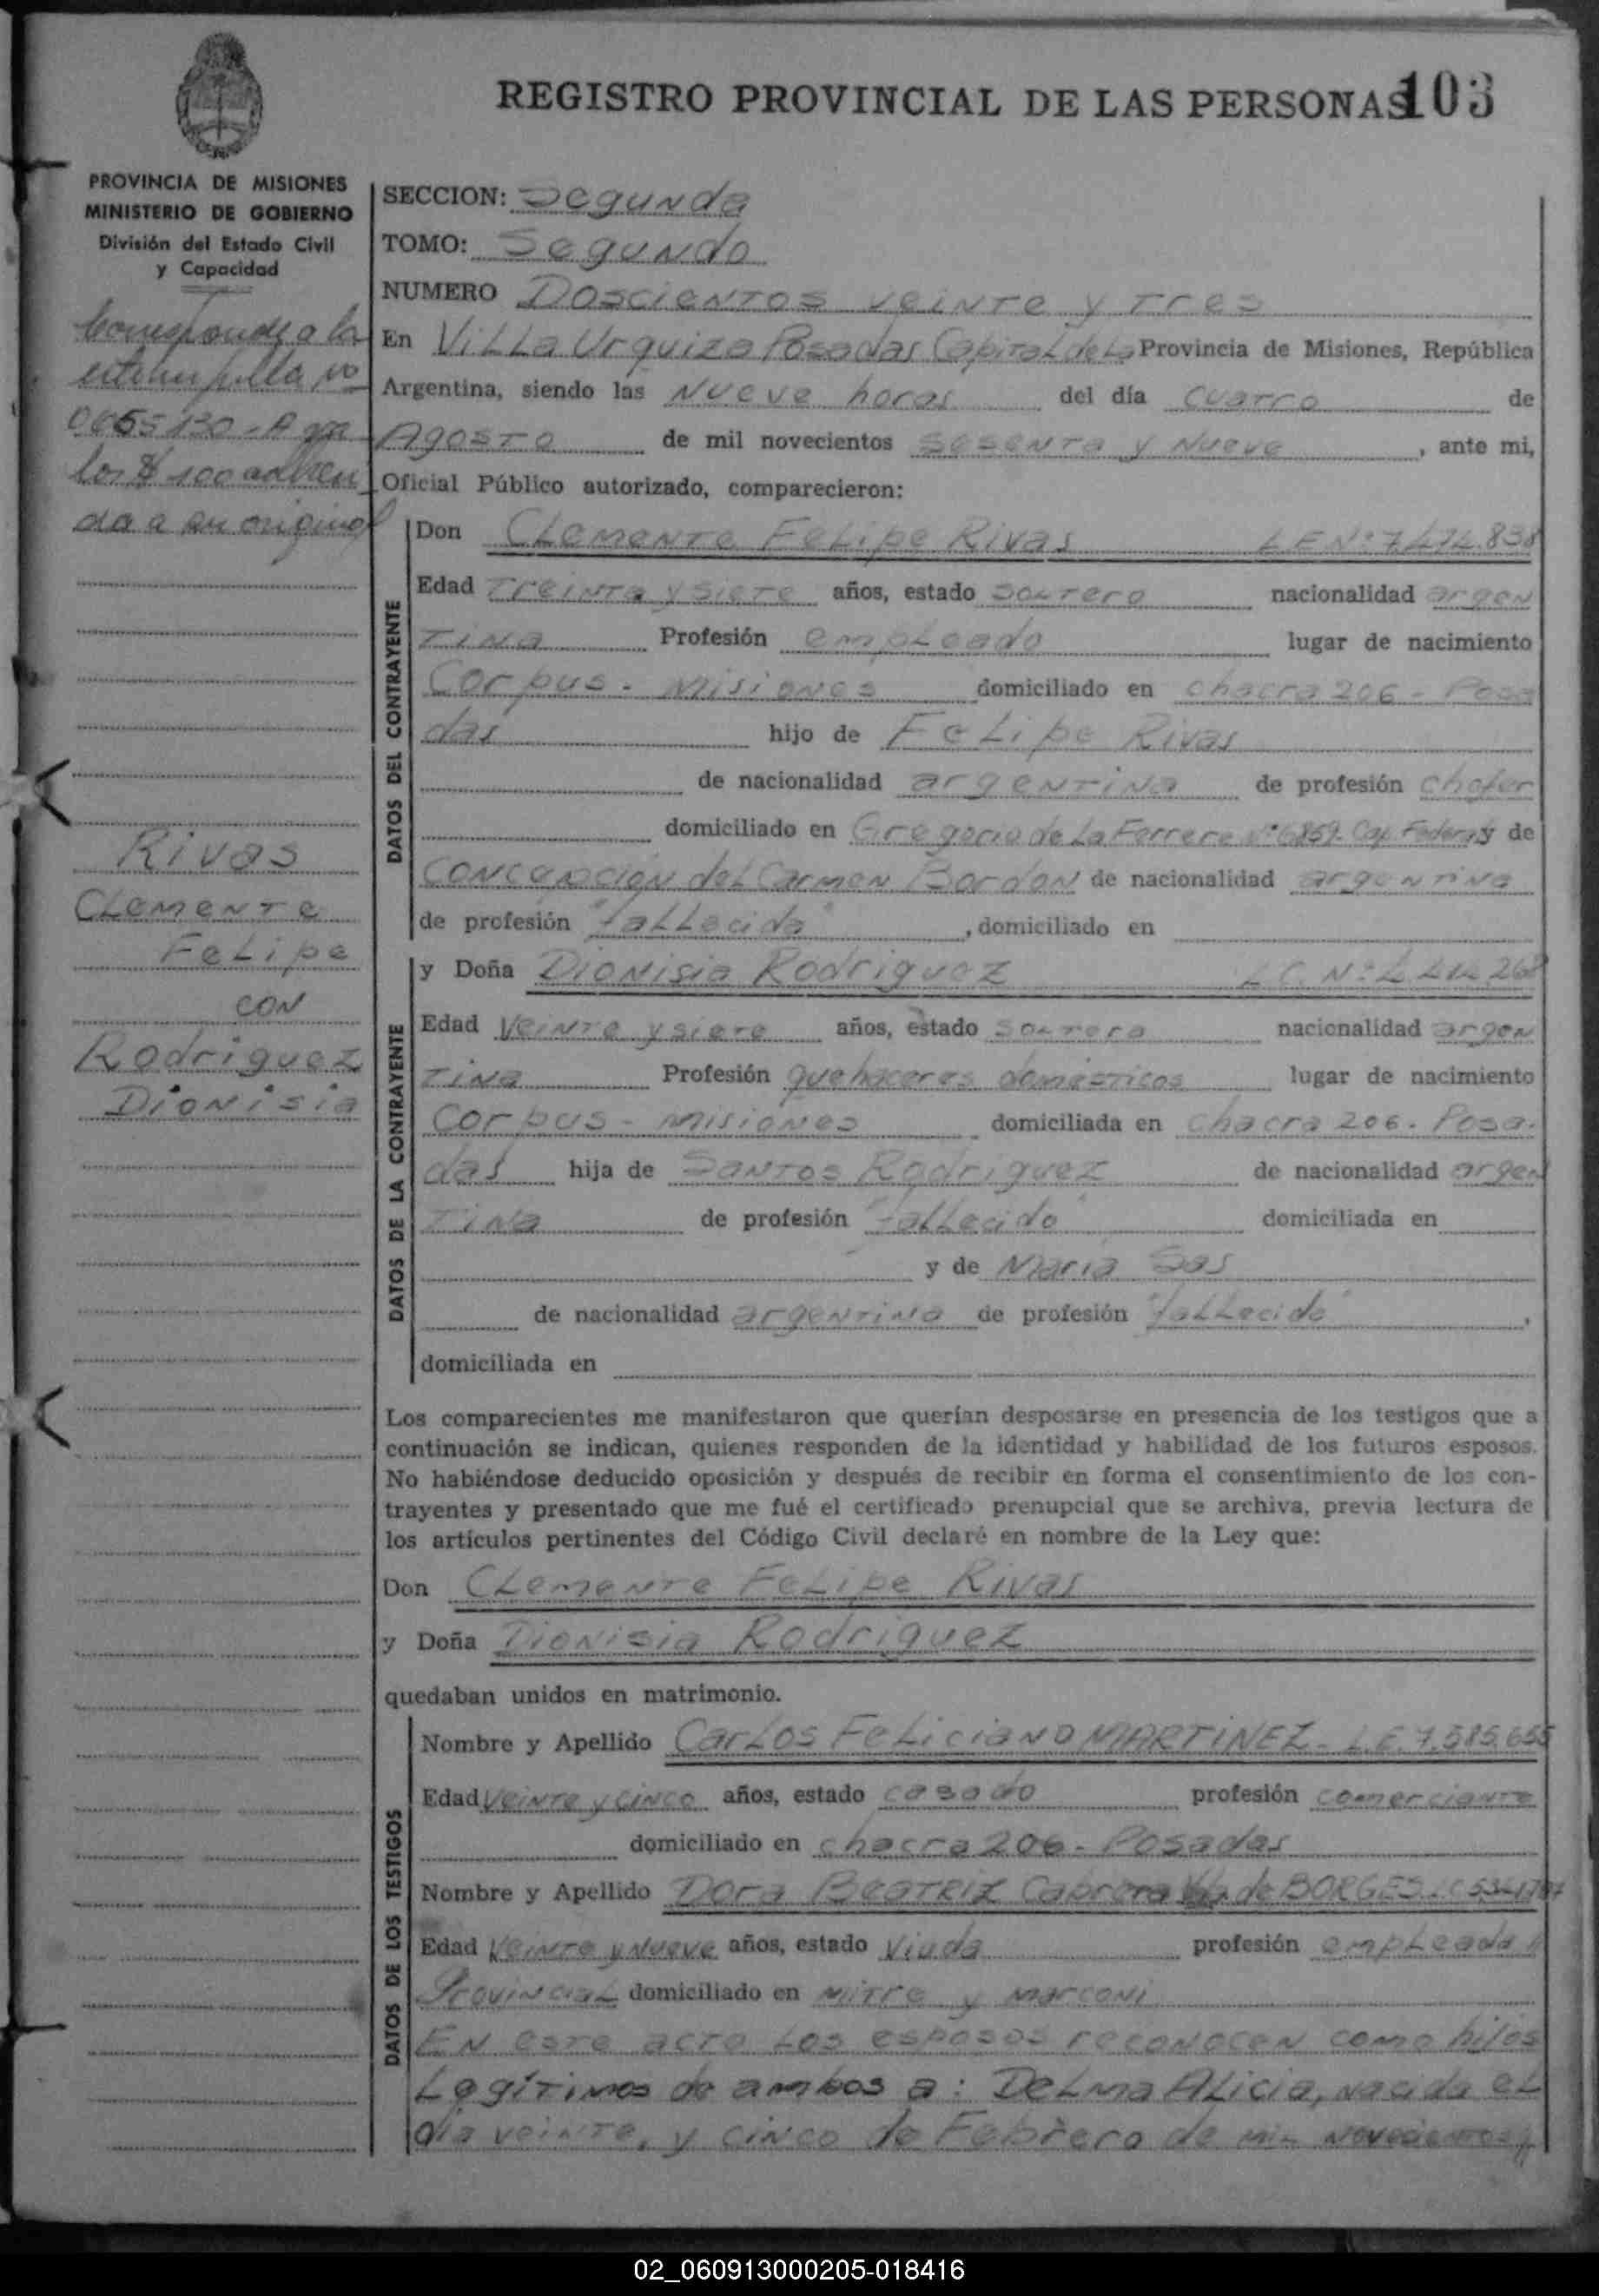 REGISTRO PROVINCIAL DE LAS PERSONAS 103
PROVINCIA DE MISIONES
MINISTERIO DE GOBIERNO
División del Estado Civil
y Capacidad
Corresponde a la
estampilla No
0065130-A por
los $ 100 adheri
da a su original
Rivas
Clemente
Felipe
con
Rodriguez
Dionisia
SECCION: Segunda
TOMO: Segundo
NUMERO Doscientos veinte y tres
En Villa Urquiza Posadas Capital de La Provincia de Misiones, República
Argentina, siendo las Nueve horas del día cuatro de
Agosto de mil novecientos sesenta y nueve, ante mi,
Oficial Público autorizado, comparecieron:
DATOS DEL CONTRAYENTE
Don Clemente Felipe Rivas L E Nº 7.474.838
Edad treinta y siete años, estado soltero nacionalidad argen
tina Profesión empleado lugar de nacimiento
Corpus - Misiones domiciliado en chacra 206 - Posa
das hijo de Felipe Rivas
de nacionalidad argentina de profesión chofer
domiciliado en Gregorio de La Ferrere Nº 6859. Cap. Federal y de
Concepción del Carmen Bordon de nacionalidad argentina
de profesión "fallecida", domiciliado en
DATOS DE LA CONTRAYENTE
y Doña Dionisia Rodriguez L C. Nº
Edad Veinte y siete años, estado soltera nacionalidad argen
tina Profesión quehaceres domésticos lugar de nacimiento
Corpus - Misiones domiciliada en chacra 206 - Posa.
das hija de Santos Rodriguez de nacionalidad argen
tina de profesión "fallecido" domiciliada en
y de Maria Sas
de nacionalidad argentina de profesión "fallecida",
domiciliada en
Los comparecientes me manifestaron que querían desposarse en presencia de los testigos que a
continuación se indican, quienes responden de la identidad y habilidad de los futuros esposos.
No habiéndose deducido oposición y después de recibir en forma el consentimiento de los con-
trayentes y presentado que me fué el certificado prenupcial que se archiva, previa lectura de
los artículos pertinentes del Código Civil declaré en nombre de la Ley que:
Don Clemente Felipe Rivas
y Doña Dionisia Rodriguez
quedaban unidos en matrimonio.
DATOS DE LOS TESTIGOS
Nombre y Apellido Carlos Feliciano MARTINEZ - L.E. 7.585.655
Edad Veinte y cinco años, estado casado profesión comerciante
domiciliado en chacra 206 - Posadas
Nombre y Apellido Dora Beatriz Cabrera Vda de BORGES LC
Edad Veinte y nueve años, estado Viuda profesión empleada
Provincial domiciliado en Mitre y Marconi
En este acto Los esposos reconocen como hijos
Legítimos de ambos a: Delma Alicia, nacida el
dia veinte, y cinco de Febrero de mil novecientos
02_060913000205-018416